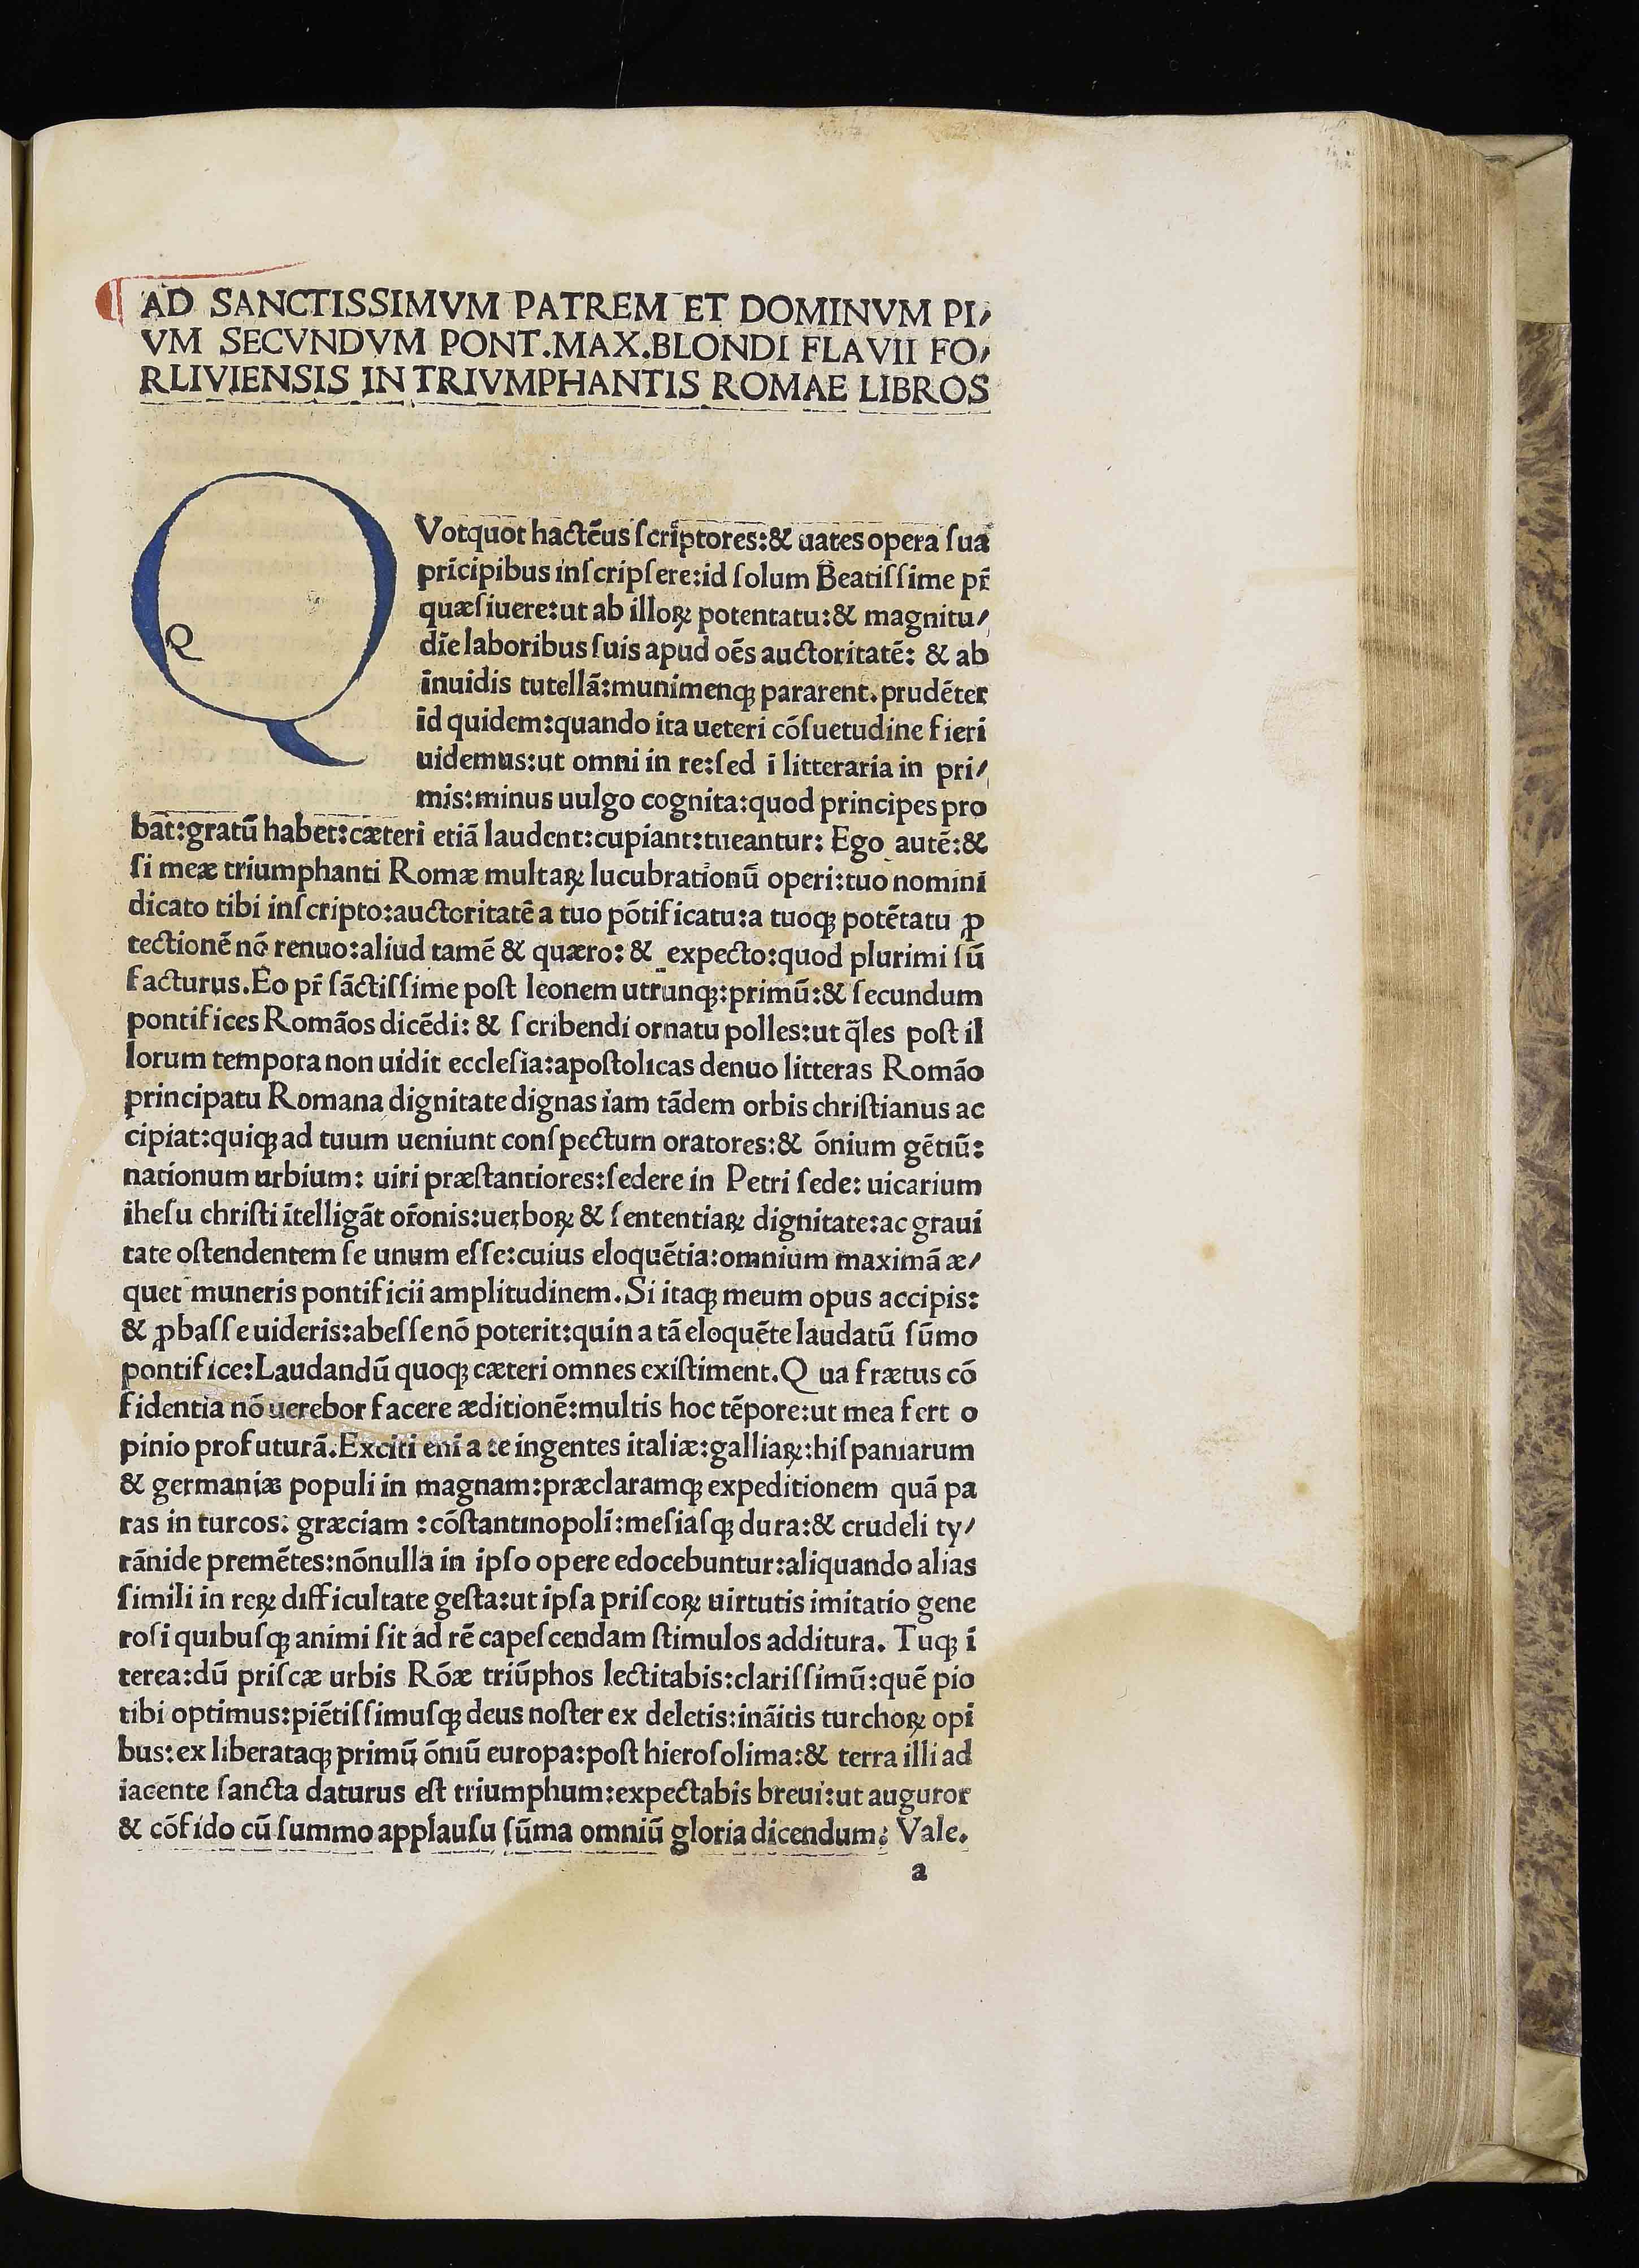 AD SANCTISSIMVM PATREM ET DOMINVM PI/
VM SECVNDVM PONT.MAX.BLONDI FLAVII FO/
RLIVIENSIS IN TRIVMPHANTIS ROMAE LIBROS
QVotquot hactēus ſcriptores:& uates opera ſua
prīcipibus inſcripſere:id ſolum Beatiſſime pr̄
quæſiuere:ut ab illoꝝ potentatu:& magnitu/
dīe laboribus ſuis apud oēs auctoritatē: & ab
īnuidis tutellā:munimenqꝫ pararent.prudēter
id quidem:quando ita ueteri cōſuetudine fieri
uidemus:ut omni in re:ſed ī litteraria in pri/
mis:minus uulgo cognita:quod principes pro
bāt:gratū habēt:cæteri etiā laudent:cupiant:tueantur: Ego autē:&
ſi meæ triumphanti Romæ multaꝝ lucubrationū operi:tuo nomini
dicato tibi inſcripto:auctoritatē a tuo pōtificatu:a tuoqꝫ potētatu ꝓ
tectionē nō renuo:aliud tamē & quæro: & expecto:quod plurimi ſū
facturus.Eo pr̄ ſāctiſſime poſt leonem utrunqꝫ:primū:& ſecundum
pontifices Romāos dicēdi: & ſcribendi ornatu polles:ut q̄les poſt il
lorum tempora non uidit eccleſia:apoſtolicas denuo litteras Romāo
principatu Romana dignitate dignas iam tādem orbis chriſtianus ac
cipiat:quiqꝫ ad tuum ueniunt conſpectum oratores:& ōnium gētiū:
nationum urbium: uiri præſtantiores:ſedere in Petri ſede: uicarium
iheſu chriſti ītelligāt or̄onis:uerboꝝ & ſententiaꝝ dignitate:ac graui
tate oſtendentem ſe unum eſſe:cuius eloquētia:omnium maximā æ/
quet muneris pontificii amplitudinem.Si itaqꝫ meum opus accipis:
& ꝓbaſſe uideris:abeſſe nō poterit:quin a tā eloquēte laudatū ſūmo
pontifice:Laudandū quoqꝫ cæteri omnes exiſtiment.Q ua frætus cō
fidentia nō uerebor facere æditionē:multis hoc tēpore:ut mea fert o
pinio profuturā.Exciti enī a te ingentes italiæ:galliaꝝ:hiſpaniarum
& germaniæ populi in magnam:præclaramqꝫ expeditionem quā pa
ras in turcos: græciam :cōſtantinopolī:meſiaſqꝫ dura:& crudeli ty/
rānide premētes:nōnulla in ipſo opere edocebuntur:aliquando alias
ſimili in reꝝ difficultate geſta:ut ipſa priſcoꝝ uirtutis imitatio gene
roſi quibuſqꝫ animi ſit ad rē capeſcendam ſtimulos additura. Tuqꝫ ī
terea:dū priſcæ urbis Rōæ triūphos lectitabis:clariſſimū:quē pio
tibi optimus:piētiſſimuſqꝫ deus noſter ex deletis:ināitis turchoꝝ opi
bus:ex liberataqꝫ primū ōniū europa:poſt hieroſolima:& terra illi ad
iacente ſancta daturus eſt triumphum:expectabis breui:ut auguror
& cōfido cū ſummo applauſu ſūma omniū gloria dicendum: Vale.
a